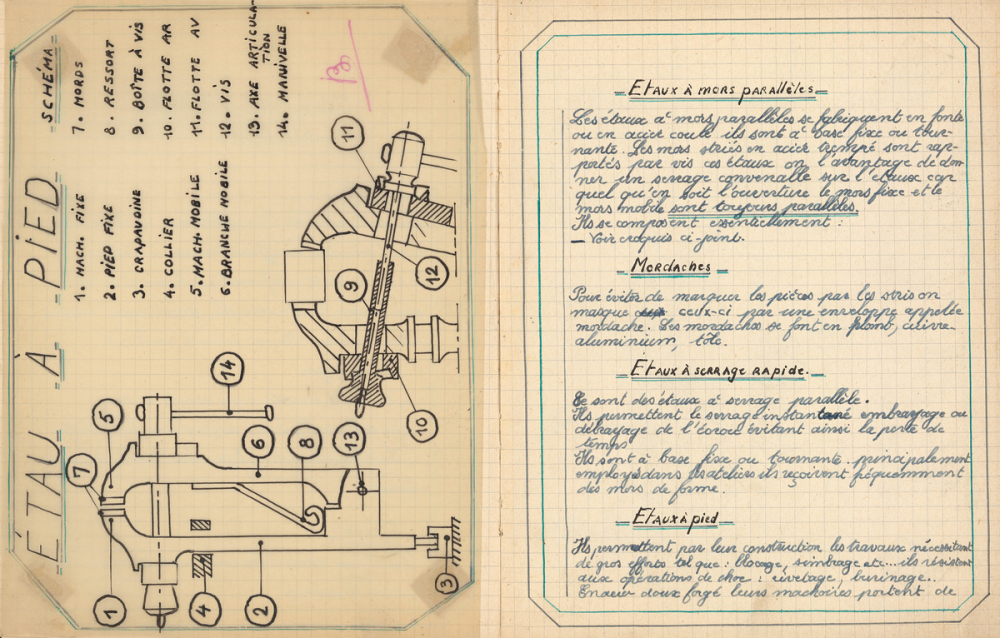 ÉTAU À PIED
SCHÉMA
1. MACH. FIXE
2. PIED FIXE
3. CRAPAUDINE
4. COLLIER
5. MACH. MOBILE
6. BRANCHE MOBILE
7. MORDS
8. RESSORT
9. BOÎTE À VIS
10. FLOTTE AR
11. FLOTTE AV
12. VIS
13. AXE ARTICULA-
TION
14. MANIVELLE
B
11
12
9
10
14
5
7
6
8
13
1
4
2
3
Etaux à mors parallèles
Les étaux à mors parallèles se fabriquent en fonte
ou en acier coulé ils sont à base fixe ou tour-
nante. Les mors striés en acier trempé sont rap-
portés par vis ces étaux on l'avantage de don-
ner un serrage convenable sur l'étaux car
quel qu'en soit l'ouverture le mors fixe et le
mors mobile sont toujours parallèles.
Ils se composent essentiellement :
— Voir croquis ci-joint.
Mordaches
Pour éviter de marquer les pièces par les stris on
masque ceux-ci par une enveloppe appelée
mordache. Les mordaches se font en plomb, cuivre
aluminium, tôle.
Etaux à serrage rapide.
Ce sont des étaux à serrage parallèle.
Ils permettent le serrage instantané embrayage ou
débrayage de l'écrou évitant ainsi la perte de
temps
Ils sont à base fixe ou tournante. principalement
employés dans les ateliers ils reçoivent fréquemment
des mors de forme.
Etaux à pied
Ils permettent par leur construction les travaux nécessitant
de gros efforts tel que : blocage, simbrage etc... ils résistent
aux opérations de choc : rivetage, burinage..
En acier doux forgé leurs machoires portent de